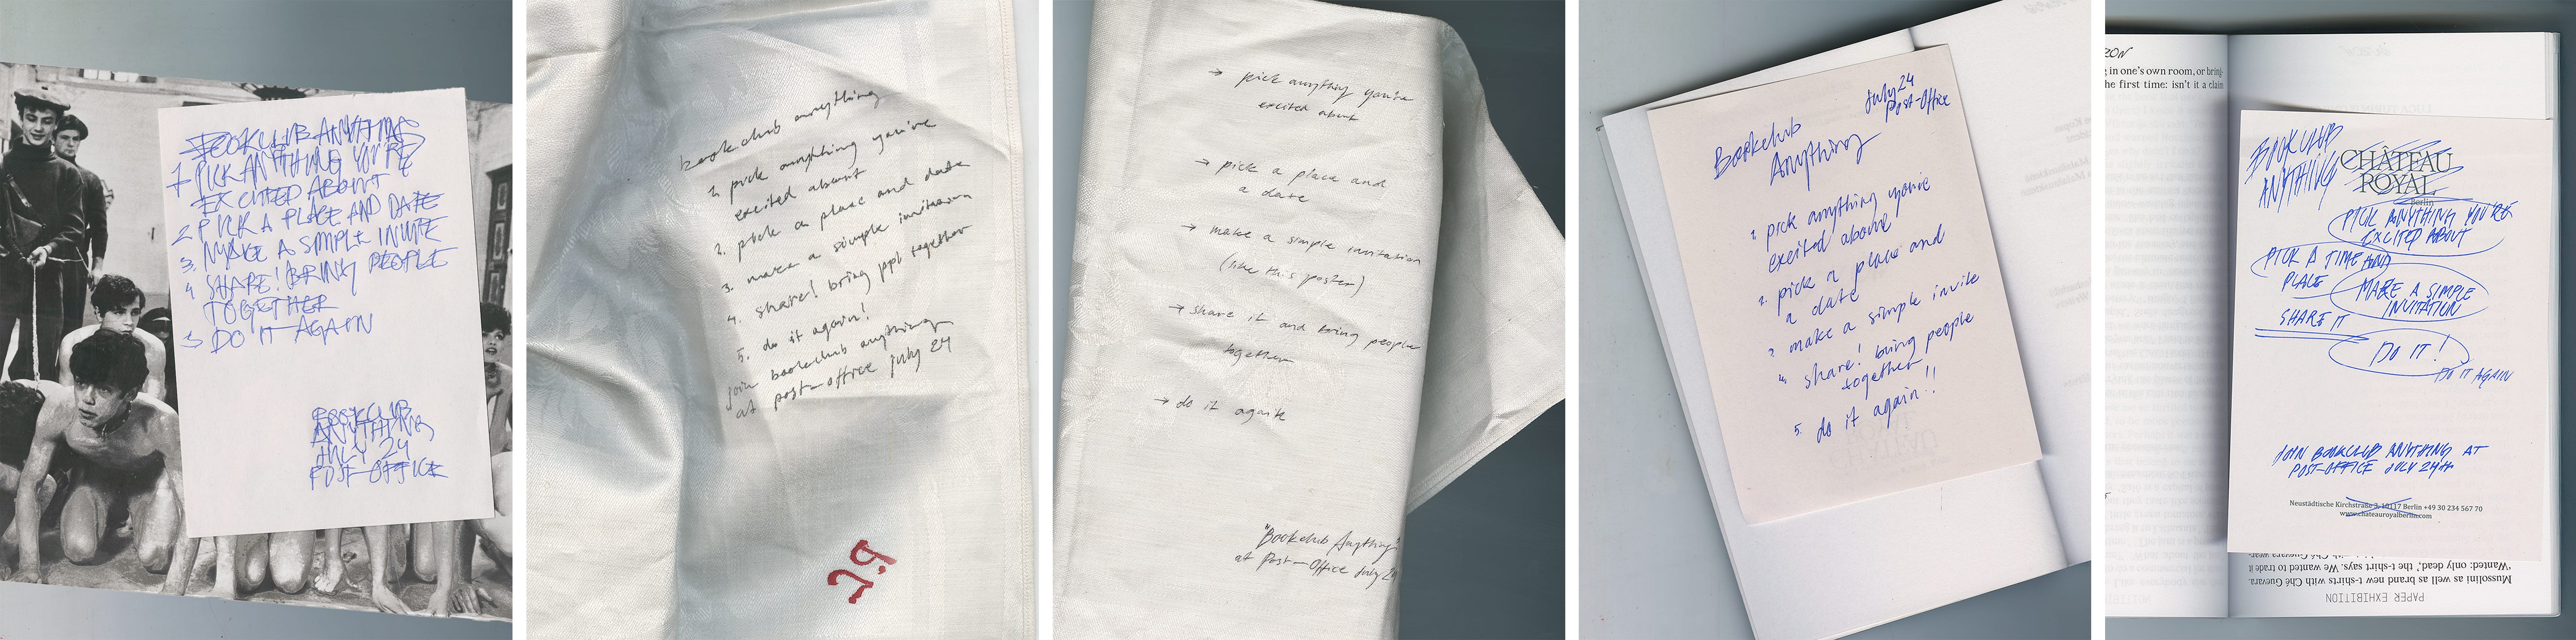 BOOKCLUB ANYTHING
1 PICK ANYTHING YOU'RE
EXCITED ABOUT
2 PICK A PLACE AND DATE
3. MAKE A SIMPLE INVITE
4 SHARE! BRING PEOPLE
TOGETHER
5 DO IT AGAIN
BOOKCLUB
ANYTHING
JULY 24
POST-OFFICE
bookclub anything
1. pick anything you're
excited about
2. pick a place and date
3. make a simple invitation
4. share! bring ppl together
5. do it again!
join bookclub anything
at post-office july 24
J.G.
→ pick anything you're
excited about
→ pick a place and
a date
→ make a simple invitation
(like this poster)
→ share it and bring people
together
→ do it again
"Bookclub Anything"
at Post-Office July 24
July 24
Post-Office
Bookclub
Anything
1. pick anything you're
excited above
2. pick a place and
a date
3. make a simple invite
4. share! bring people
together
5. do it again!!
ZON
g in one's own room, or bring-
he first time: isn't it a claim
BOOKCLUB
ANYTHING
CHÂTEAU
ROYAL
Berlin
PICK ANYTHING YOU'RE
EXCITED ABOUT
PICK A TIME AND
PLACE
MAKE A SIMPLE
INVITATION
SHARE IT
DO IT!
DO IT AGAIN
JOIN BOOKCLUB ANYTHING AT
POST-OFFICE JULY 24th
Neustädtische Kirchstraße 3, 10117 Berlin +49 30 234 567 70
www.chateauroyalberlin.com
PAPER EXHIBITION
Mussolini as well as brand new t-shirts with Ché Guevara.
'Wanted: only dead', the t-shirt says. We wanted to trade it